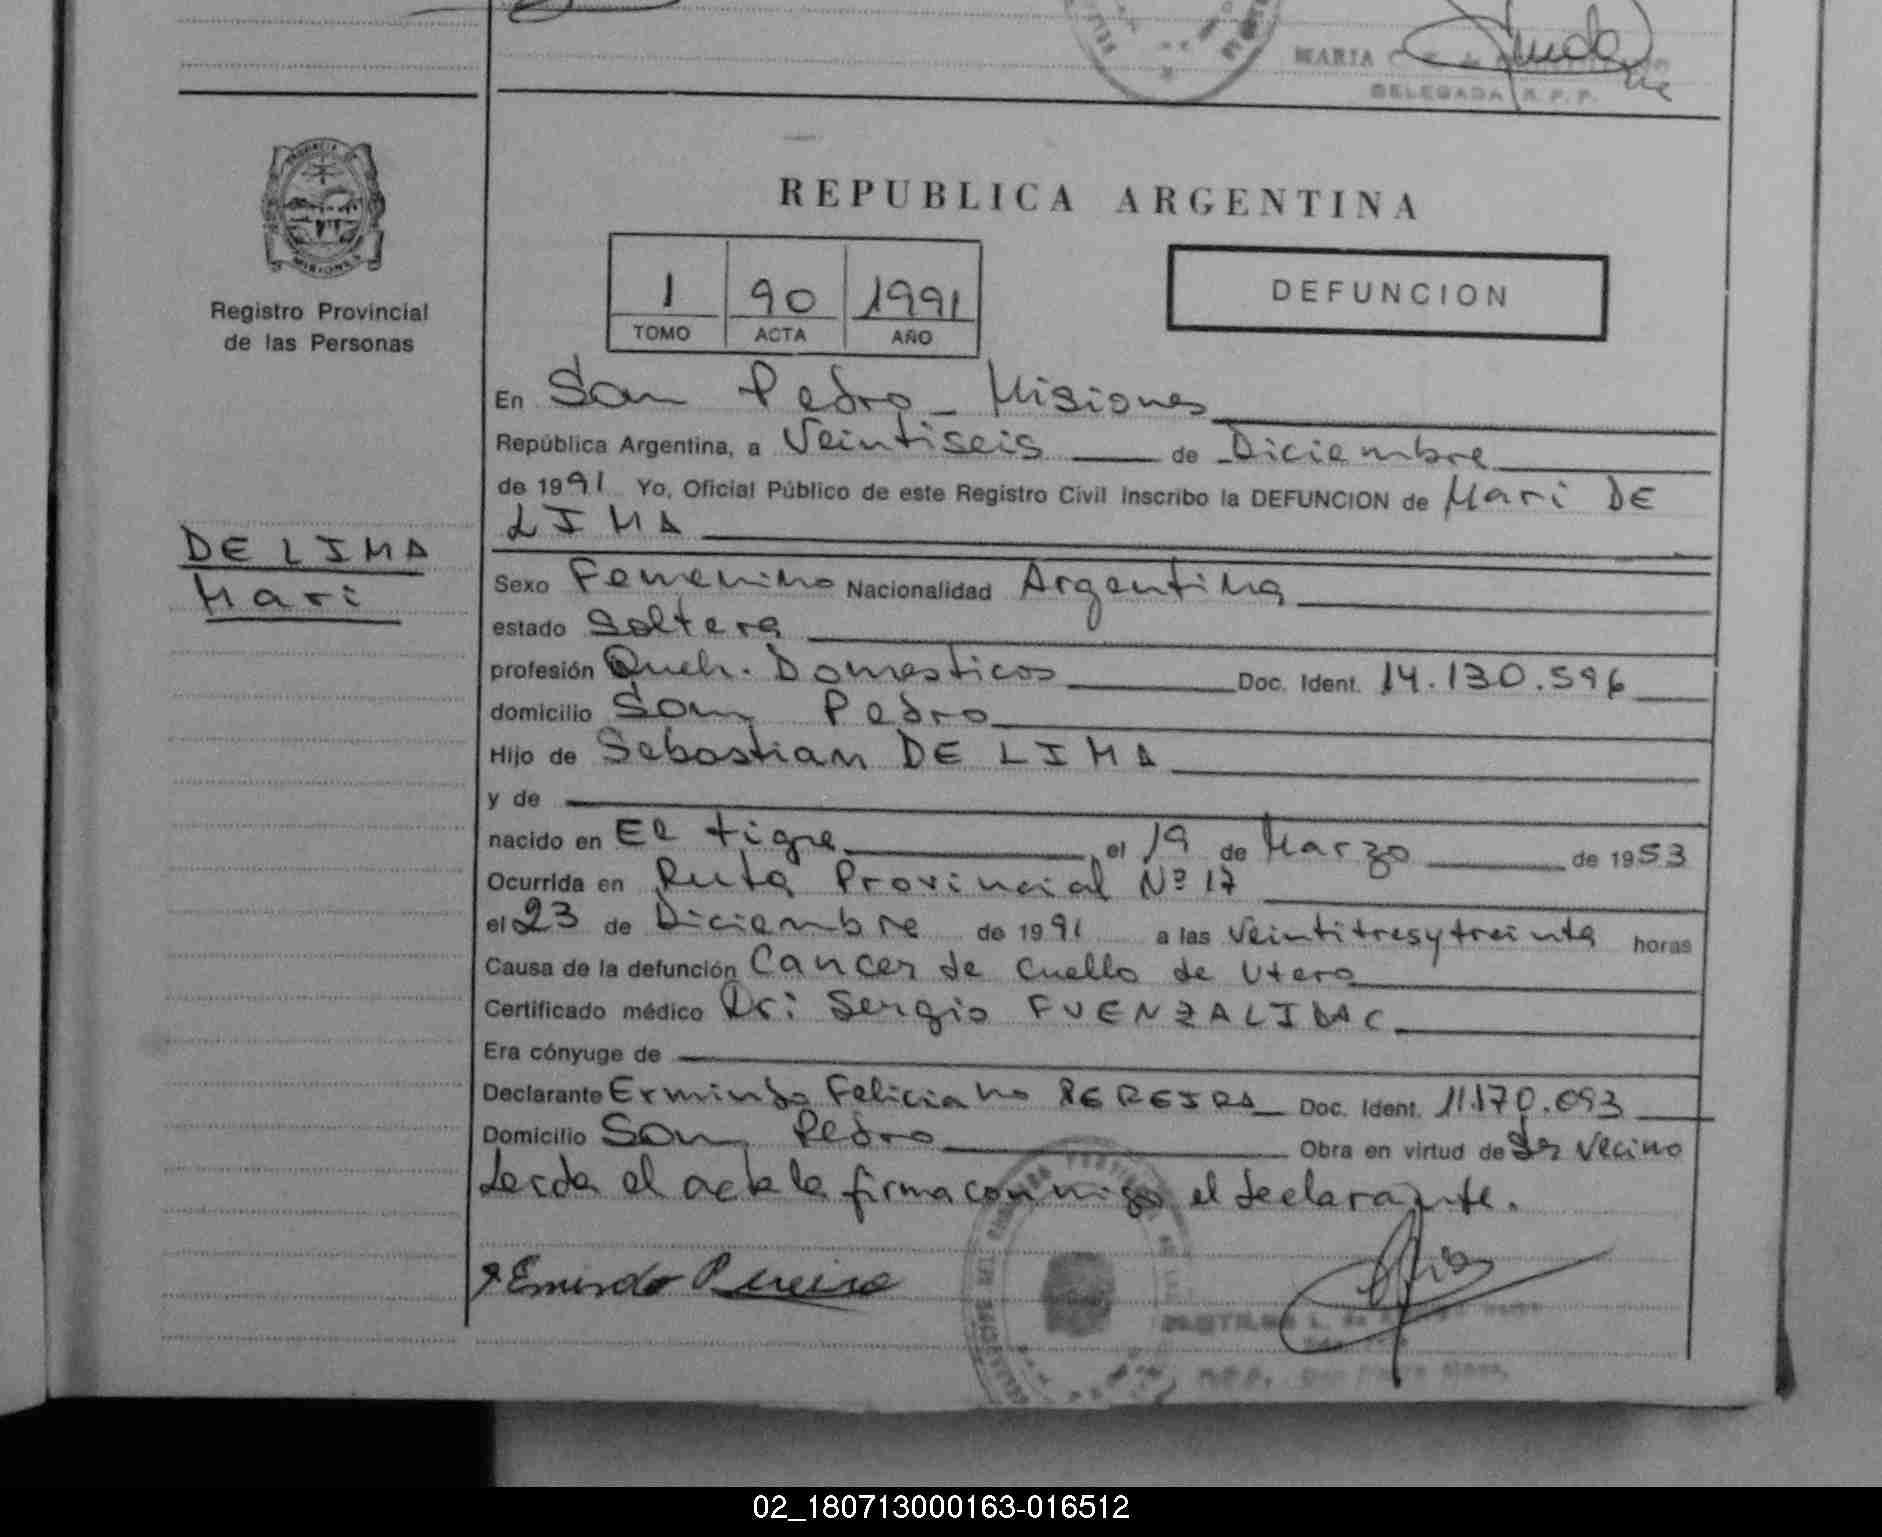 MARIA
DELEGADA R.P.P.
PROVINCIA DE
MISIONES
Registro Provincial
de las Personas
REPUBLICA ARGENTINA
1 90 1991
TOMO ACTA AÑO
DEFUNCION
En San Pedro - Misiones
República Argentina, a Veintiseis de Diciembre
de 1991 Yo, Oficial Público de este Registro Civil Inscribo la DEFUNCION de Mari DE
LIMA
DE LIMA
Mari
Sexo Femenino Nacionalidad Argentina
estado Soltera
profesión Queh. Domesticos Doc. Ident. 14.130.596
domicilio San Pedro
Hijo de Sebastian DE LIMA
y de
nacido en El tigre el 19 de Marzo de 1953
Ocurrida en Ruta Provincial Nº 17
el 23 de Diciembre de 1991 a las Veintitresytreinta horas
Causa de la defunción Cancer de Cuello de Utero
Certificado médico Dr: Sergio FUENZALIDAC
Era cónyuge de
Declarante Ermindo Feliciano PEREIRA Doc. Ident. 11.170.093
Domicilio San Pedro Obra en virtud de Ser Vecino
Leida el acta la firma conmigo el declarante.
Ermindo Pereira
02_180713000163-016512